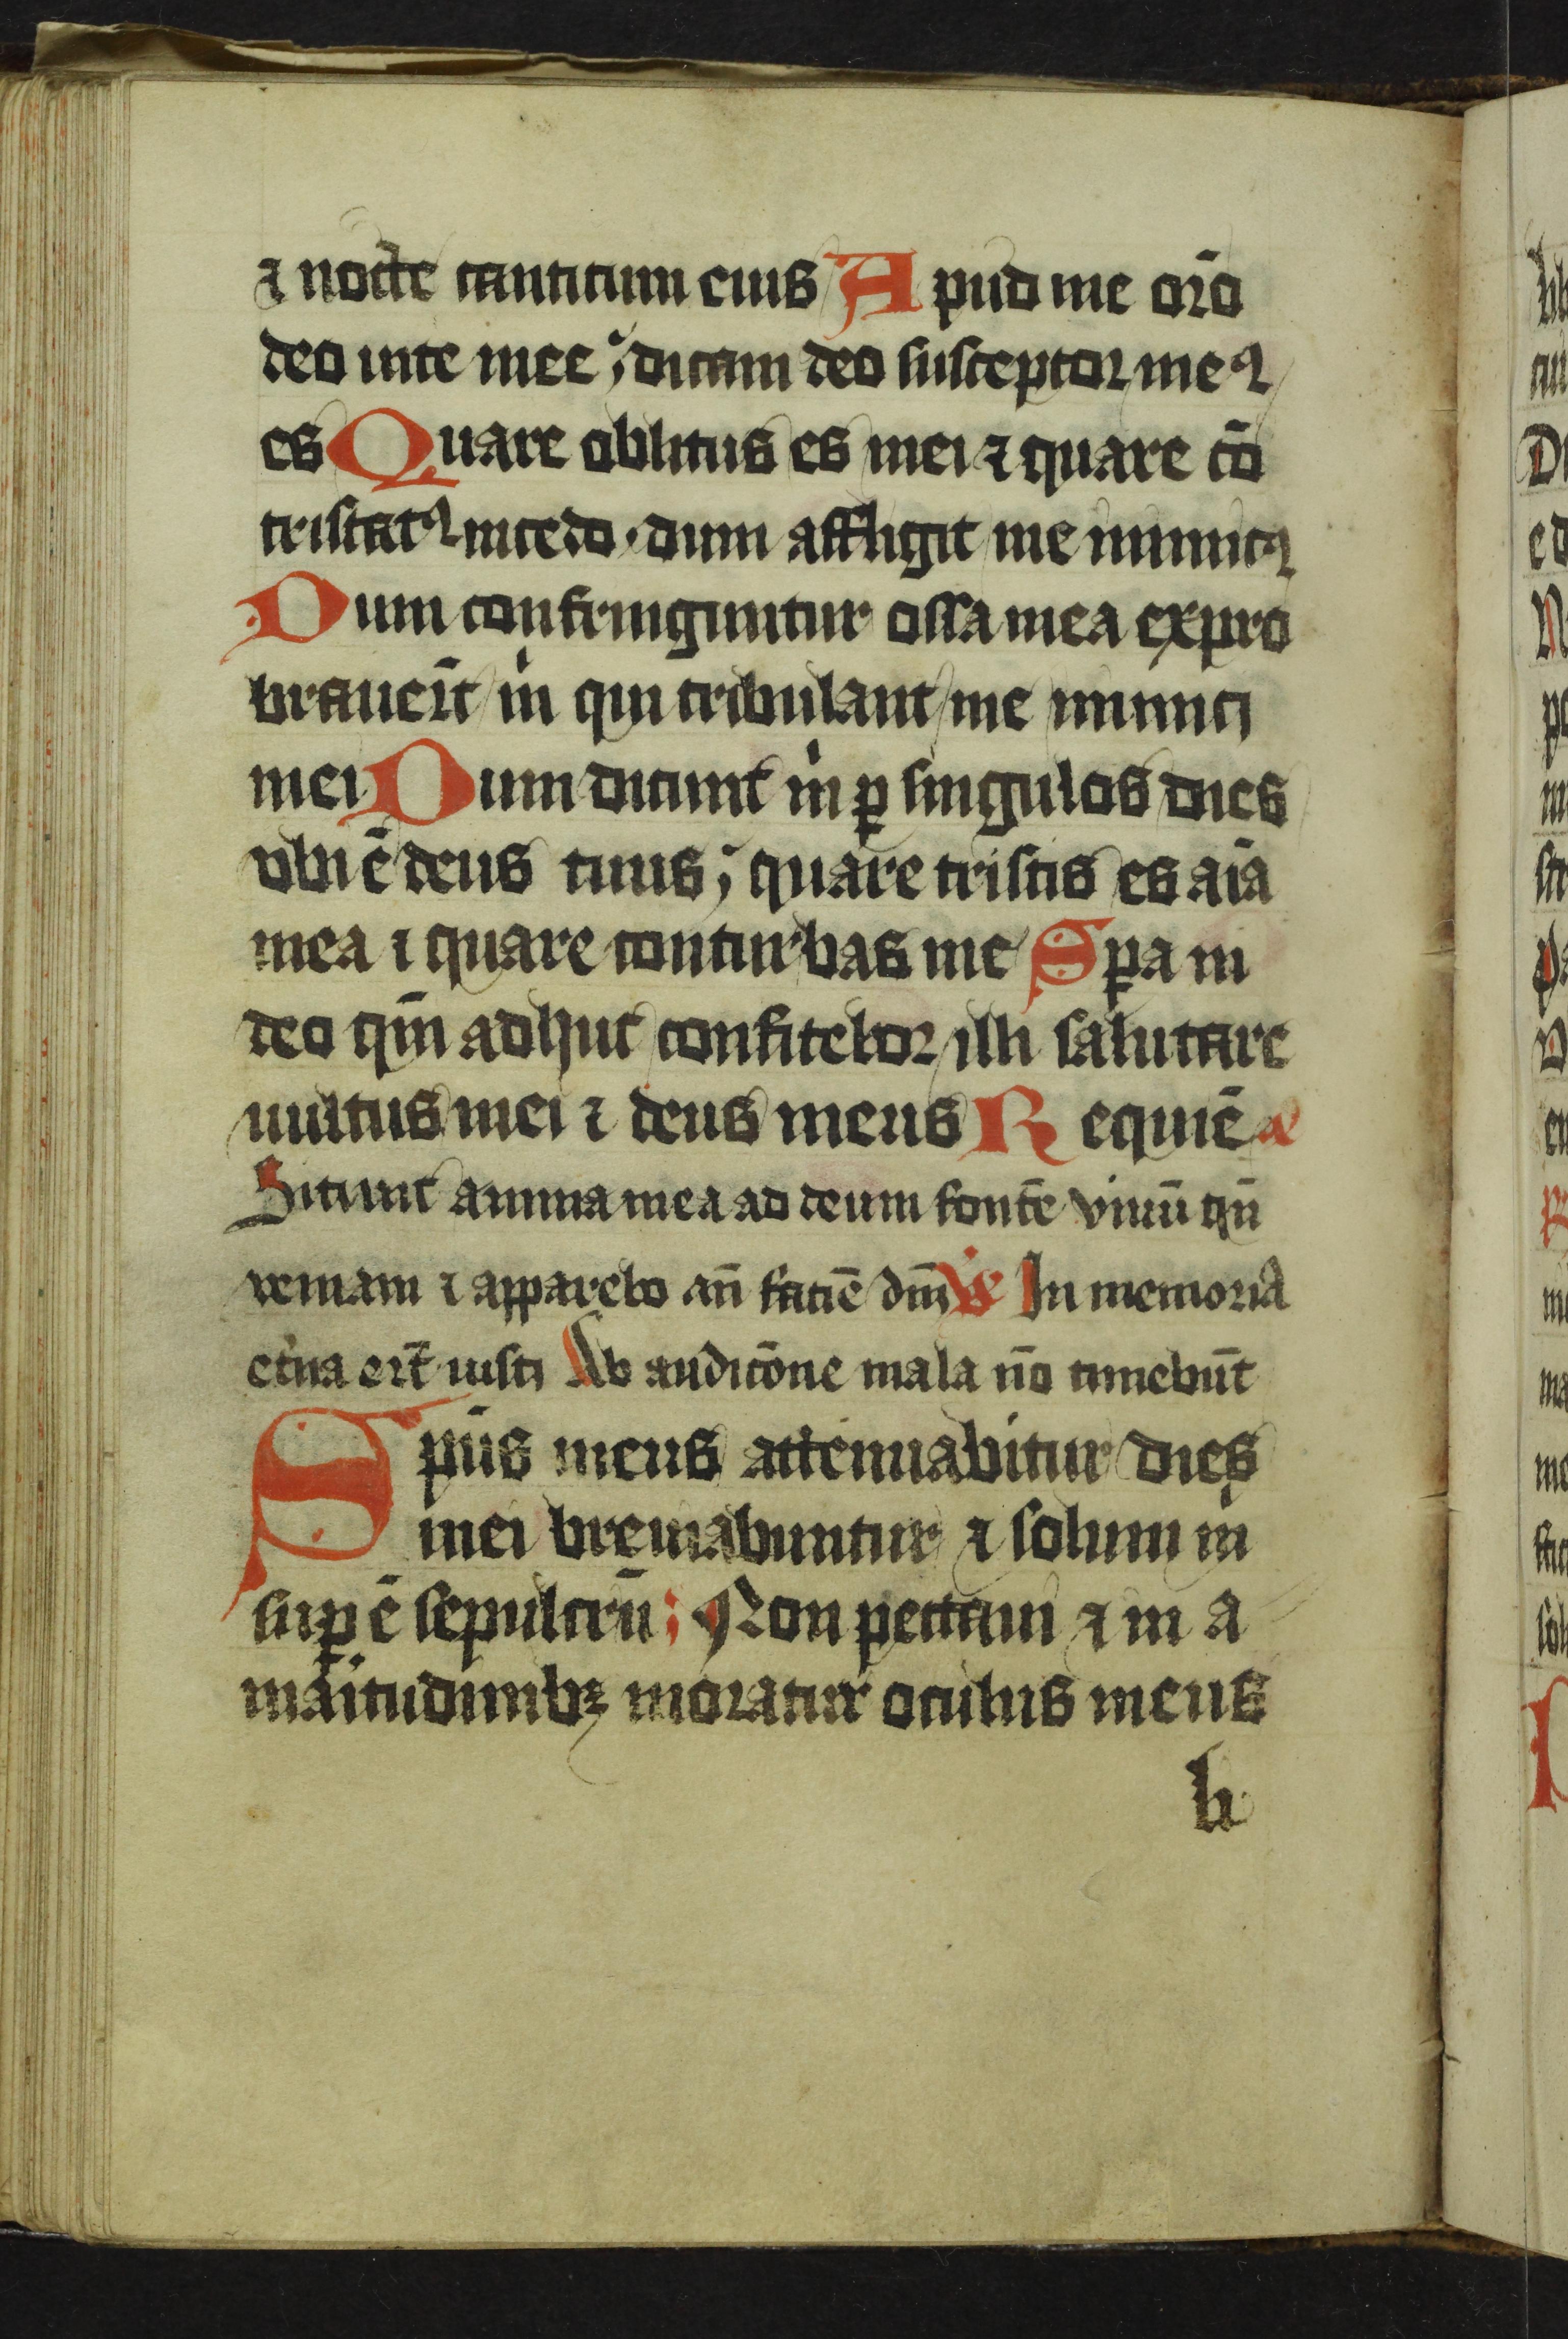 ⁊ nocte canticum eius Apud me or̄o
deo uite mee ; dicam deo susceptor meꝰ
es Quare oblitus es mei ⁊ quare cō
tristatꝰ incedo · dum affligit me inimicꝰ
Dum confringuntur ossa mea expro
brauer̄t m̍ qui tribulant me inimici
mei Dum dicunt m̍ ꝑ singulos dies
vbi ē deus tuus ; quare tristis es aīa
mea ⁊ quare conturbas me Sꝑa in
deo qm̄ adhuc confitebor illi salutare
uultus mei ⁊ deus meus Requiē
Sitiuit anima mea ad deum fontē viuū qn̄
veniam ⁊ apparebo an̄ faciē dn̄i V̇s In memoria
et̍na er̄t iusti Ab audicōne mala nō timebūt
Spūs meus attenuabitur dies
mei breuiabuntur ⁊ solum m̍
suꝑē sepulcrū ; Non peccaui ⁊ in a
maritudinibꝫ moratur oculus meus
li